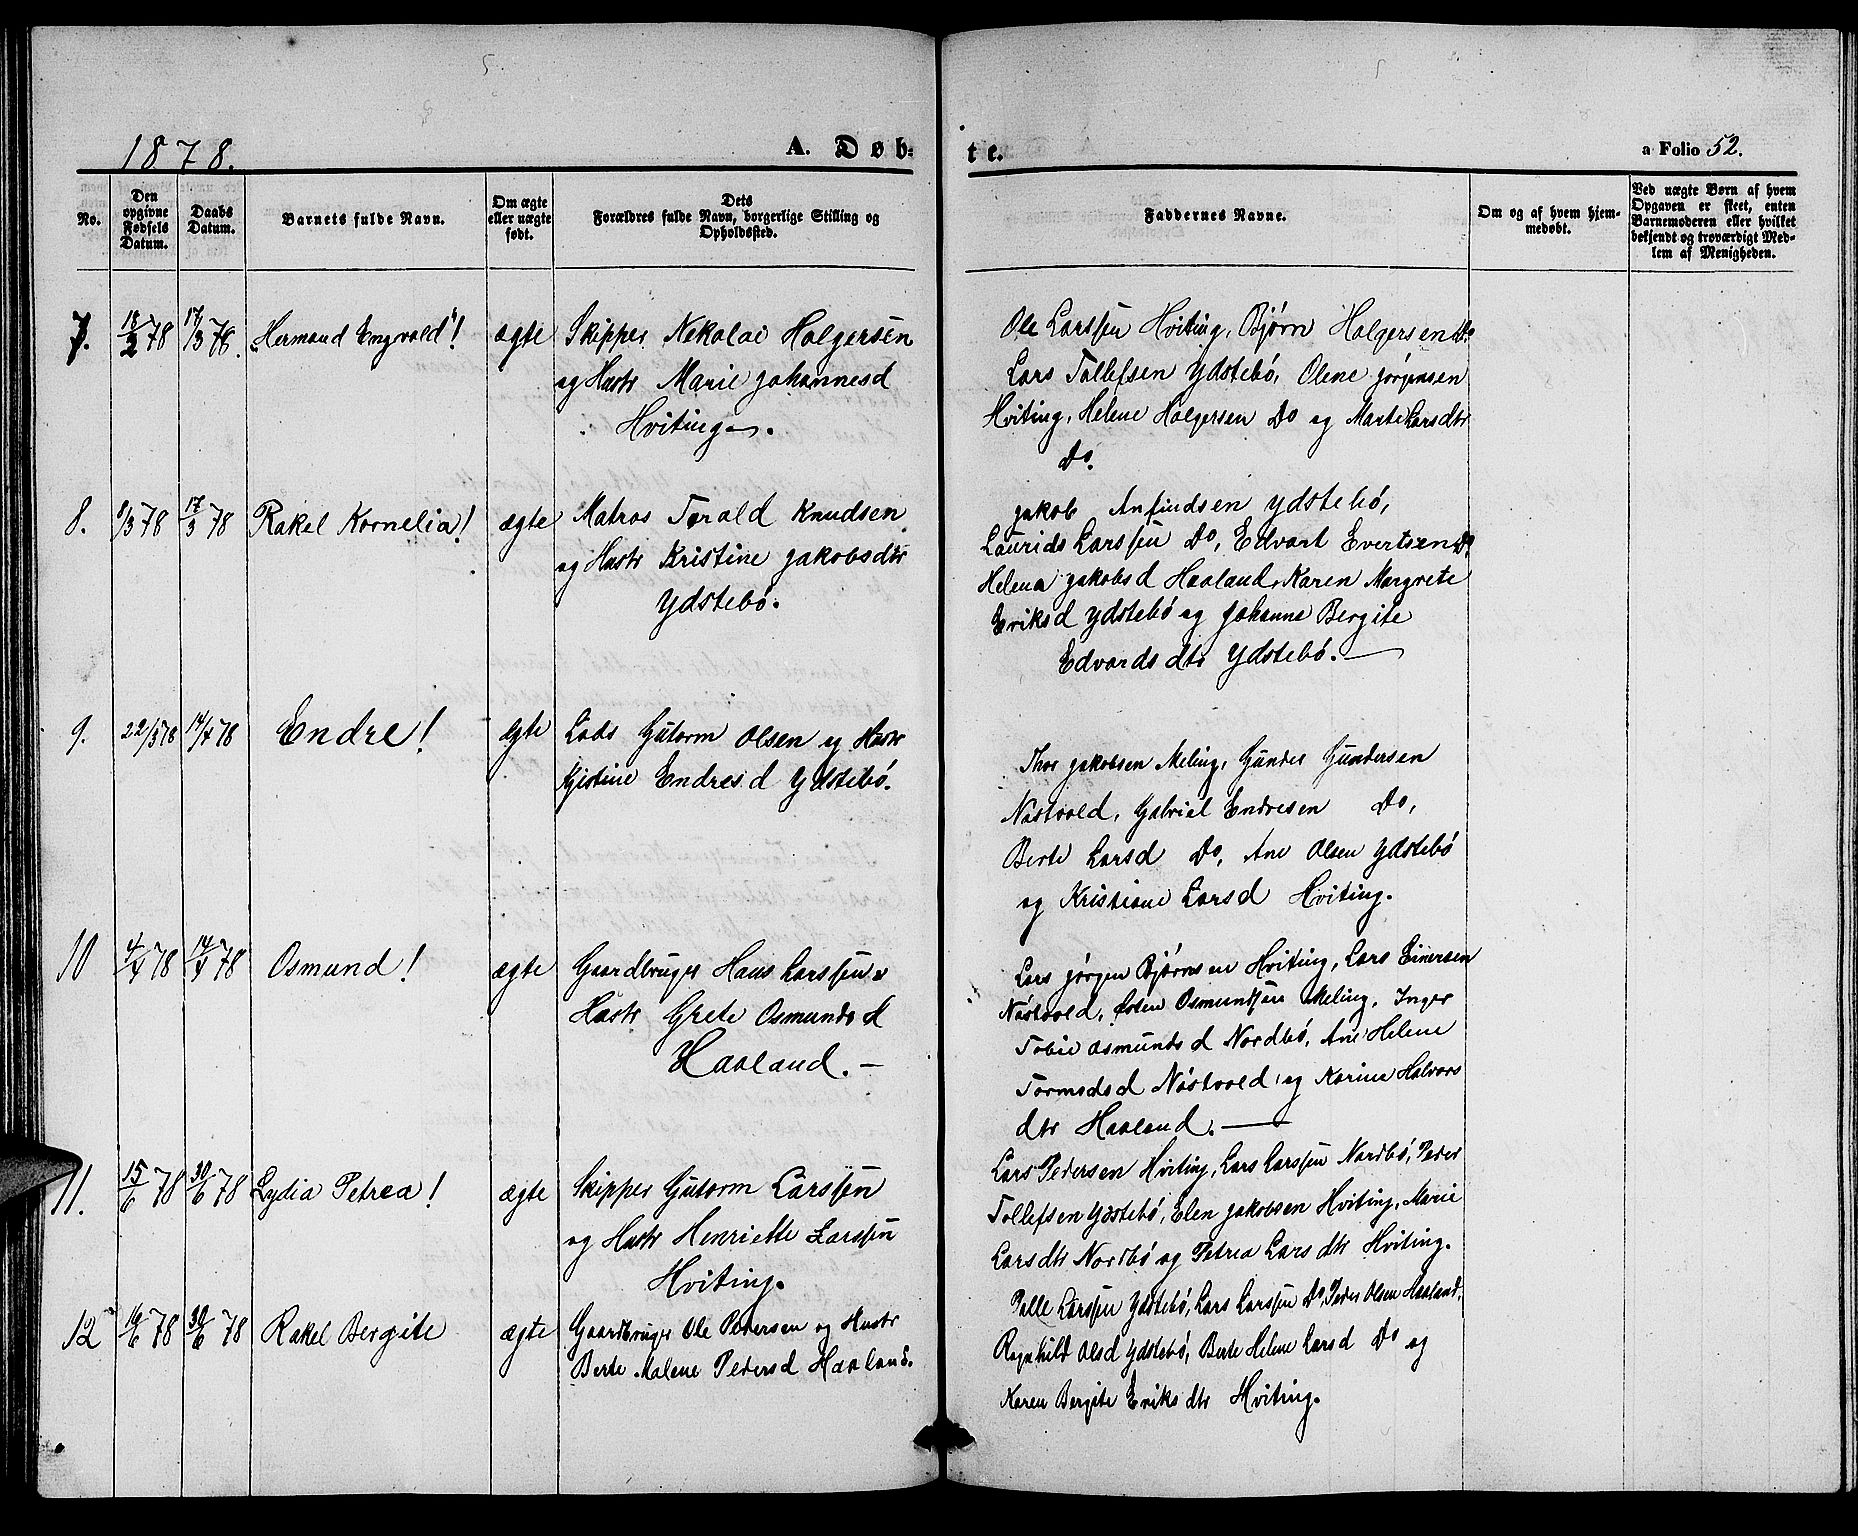 1878.
A. Døb-
te.
a Folio 52.
No.
Den opgivne Fødsels Datum.
Daabs Datum.
Barnets fulde Navn.
Om ægte eller uægte født.
Dets Forældres fulde Navn, borgerlige Stilling og Opholdssted.
Faddernes Navne.
Om og af hvem hjem-
medøbt.
Ved uægte Børn af hvem
Opgaven er skeet, enten
Barnemoderen eller hvilket
bekjendt og troværdigt Med-
lem af Menigheden.
7. 18/2 78 17/3 78. "Hermand Engvald"! ægte Skipper Nekolai Holgersen
og Hustr Marie Johannesd
Hviting.
Ole Larssen Hviting, Bjørn Holgersen Do.
Lars Tollefsen Ydstebö, Olene Jörgensen
Hviting, Helene Holgersen Do og Marte Larsdtr
Do.
8. 8/3 78 17/3 78 Rakel Kornelia! ægte Matros Torald Knudsen
og Hustr Kristine Jakobsdtr
Ydstebö.
Jakob Anfindsen Ydstebö,
Laurids Larssen Do, Edvart Evertsen Do
Helena Jakobsd Haaland, Karen Margrete
Eriksd Ydstebö og Johanne Bergite
Edvardsdtr Ydstebö.
9. 22/3 78 14/4 78 Endre! ægte Lods Gutorm Olsen og Hustr
Kjistine Endresd Ydstebö.
Thor Jakobsen Meling, Gunder Gundersen
Nöstvold, Gabriel Endresen Do,
Berte Larsd Do, Ane Olsen Ydstebö
og Kristiane Larsd Hviting.
10 4/4 78 14/4 78 Osmund! ægte Gaardbruger Hans Larssen
Hustr Grete Osmundsd
Haaland. -
Lars Jørgen Bjørnsen Hviting, Lars Einersen
Nöstvold, Østen Osmundsen Meling, Inger
Tobie Osmundsd Nordbö, Ane Helene
Tormodsd Nöstvold og Karine Halvors
dtr Haaland.
11. 15/6 78 30/6 78 Lydia Petrea! ægte Skipper Gutorm Larssen
og Hustr Henriette Larssen
Hviting.
Lars Pedersen Hviting, Lars Larssen Nordbö, Peder
Tollefsen Ydstebö, Elen Jakobsen Hviting, Marie
Larsdtr Nordbö og Petrea Larsdtr Hviting.
12 16/6 78 30/6 78 Rakel Bergite ægte Gaardbruger Ole Pedersen og Hustr
Berte Malene Pedersd Haaland.
Larssen Ydstebö, Lars Larssen Do, Peder Olsen Haaland,
Ragnhild Olsd Ydstebö, Berte Helene Larsd Do og
Karen Bergite Eriksdtr Hviting.